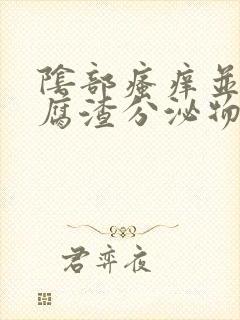 陰部瘙痒並
腐渣分泌物
君弈夜